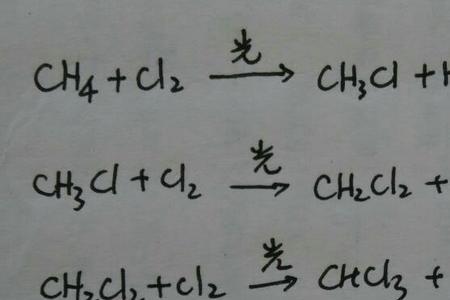 CH₄ + Cl₂ —光→ CH₃Cl + H
CH₃Cl + Cl₂ —光→ CH₂Cl₂ +
CH₂Cl₂ + Cl₂ —光→ CHCl₃ +